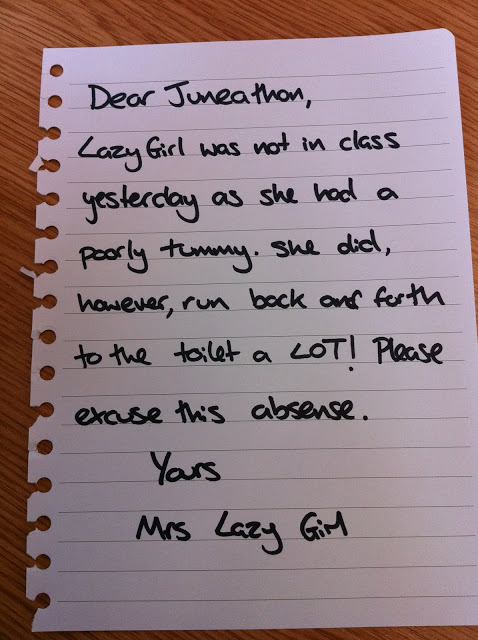 Dear Juneathon,
Lazy Girl was not in class
yesterday as she had a
poorly tummy. She did,
however, run back and forth
to the toilet a LOT! Please
excuse this absense.
Yours
Mrs Lazy Girl